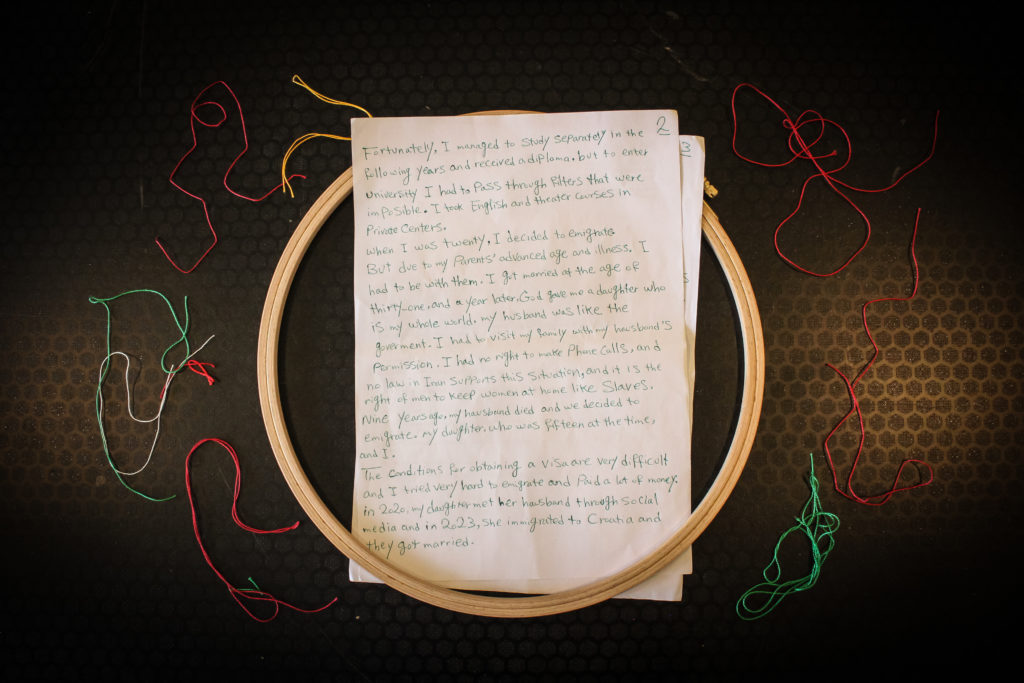 2
3
Fortunately, I managed to study separately in the
following years and received a diploma. but to enter
University I had to Pass through filters that were
imposible. I took English and theater courses in
Private Centers.
when I was twenty, I decided to emigrate
But due to my Parents' advanced age and illness, I
had to be with them. I got married at the age of
thirty-one, and a year later, God gave me a daughter who
is my whole world. my husband was like the
goverment. I had to visit my family with my hausband's
Permission. I had no right to make Phone Calls, and
no law in Iran supports this situation, and it is the
right of men to keep women at home like Slaves.
Nine years ago, my hausband died and we decided to
emigrate. my daughter, who was fifteen at the time,
and I.
The conditions for obtaining a visa are very difficult
and I tried very hard to emigrate and Paid a lot of money.
in 2020, my daughter met her hausband through social
media and in 2023, She immigrated to Croatia and
they got married.